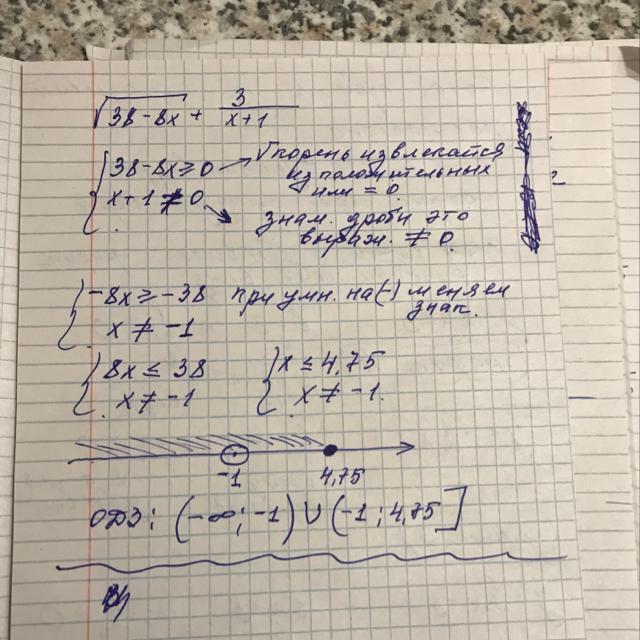 √38-8x + 3/(x+1)
{ 38-8x ≥ 0 → √корень извлекается
из положительных
или = 0
x+1 ≠ 0 → знам. дроби это
выраж. ≠ 0
{ -8x ≥ -38 при умн. на (-) меняем
знак.
x ≠ -1
{ 8x ≤ 38 { x ≤ 4,75
x ≠ -1 x ≠ -1.
-1 4,75
ОДЗ: (-∞; -1) ∪ (-1; 4,75]